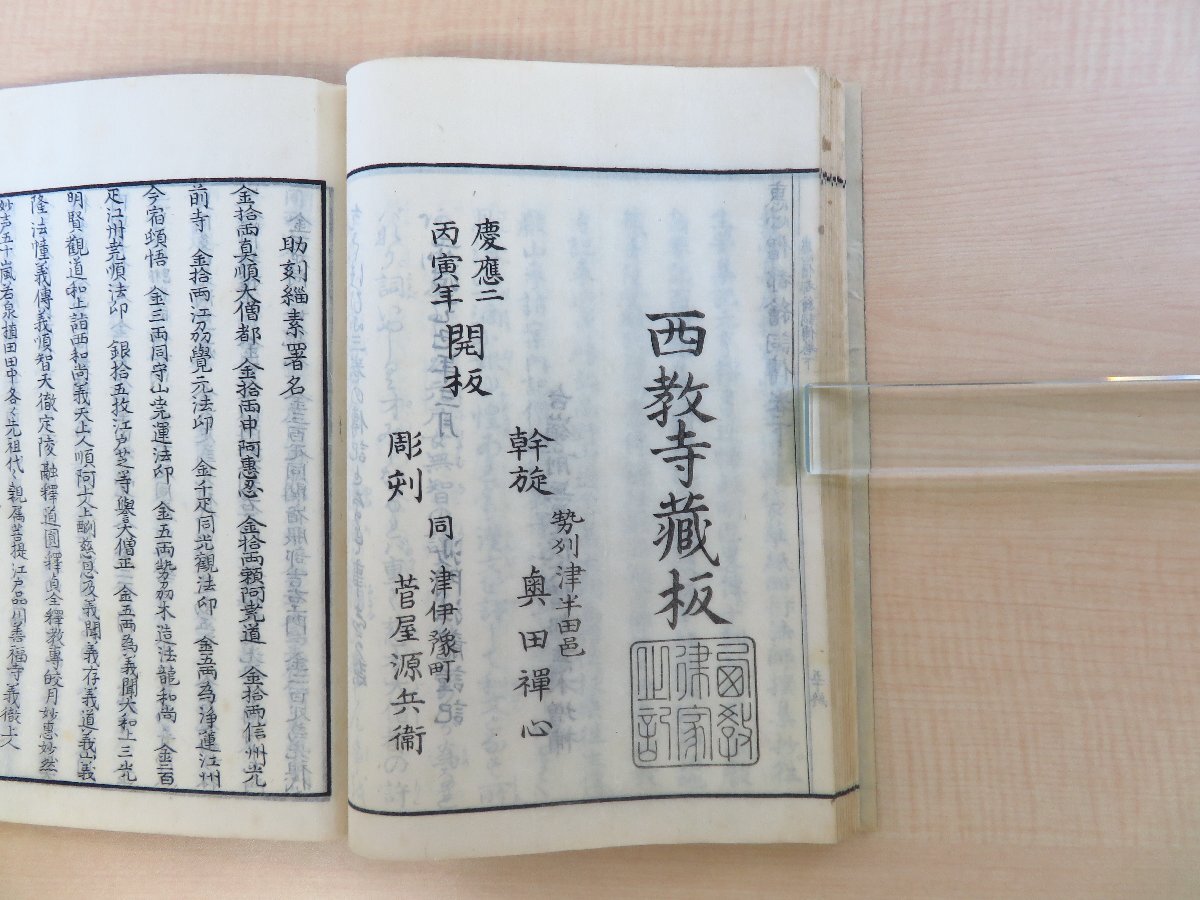 西教寺藏板
西教
律家
之記
幹旋 勢州津半田邑 奥田禪心
慶應二
丙寅年 開板
彫刻 同津伊豫町 菅屋源兵衞
助刻緇素署名
金拾両真順大僧都 金拾両中阿惠忍 金拾両頼阿尭道 金拾両信州光
前寺 金拾両江刕覺元法印 金千疋同光觀法印 金五両為浄蓮江州
今宿頌悟 金三両同守山尭運法印 金五両勢刕木造法龍和尚 金二百
疋江州尭順法印 銀拾五枚江戸芝寺譽大僧正 金五両為義聞大和上三光
明賢觀道和上諦西和尚義天上人順阿上人上酬慈恩及義聞義存義道義山義
隆法幢義傳義順智天徹定陵融釋道圓釋貞全釋教專皎月妙惠妙然
妙声五十嵐若泉植田田中各々先祖代々親属菩提江戸品川善福寺義嶺上人